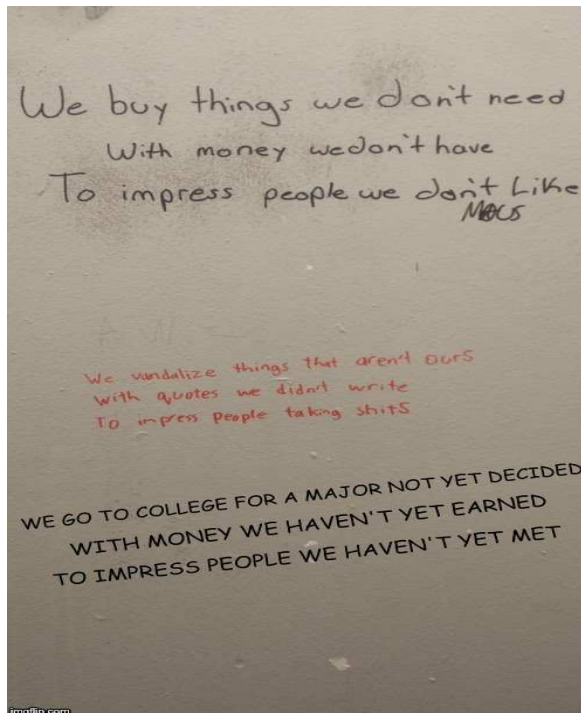 We buy things we don't need
With money we don't have
To impress people we don't Like
We vandalize things that aren't ours
with quotes we didn't write
To impress people taking shits
WE GO TO COLLEGE FOR A MAJOR NOT YET DECIDED
WITH MONEY WE HAVEN'T YET EARNED
TO IMPRESS PEOPLE WE HAVEN'T YET MET
imgflip.com